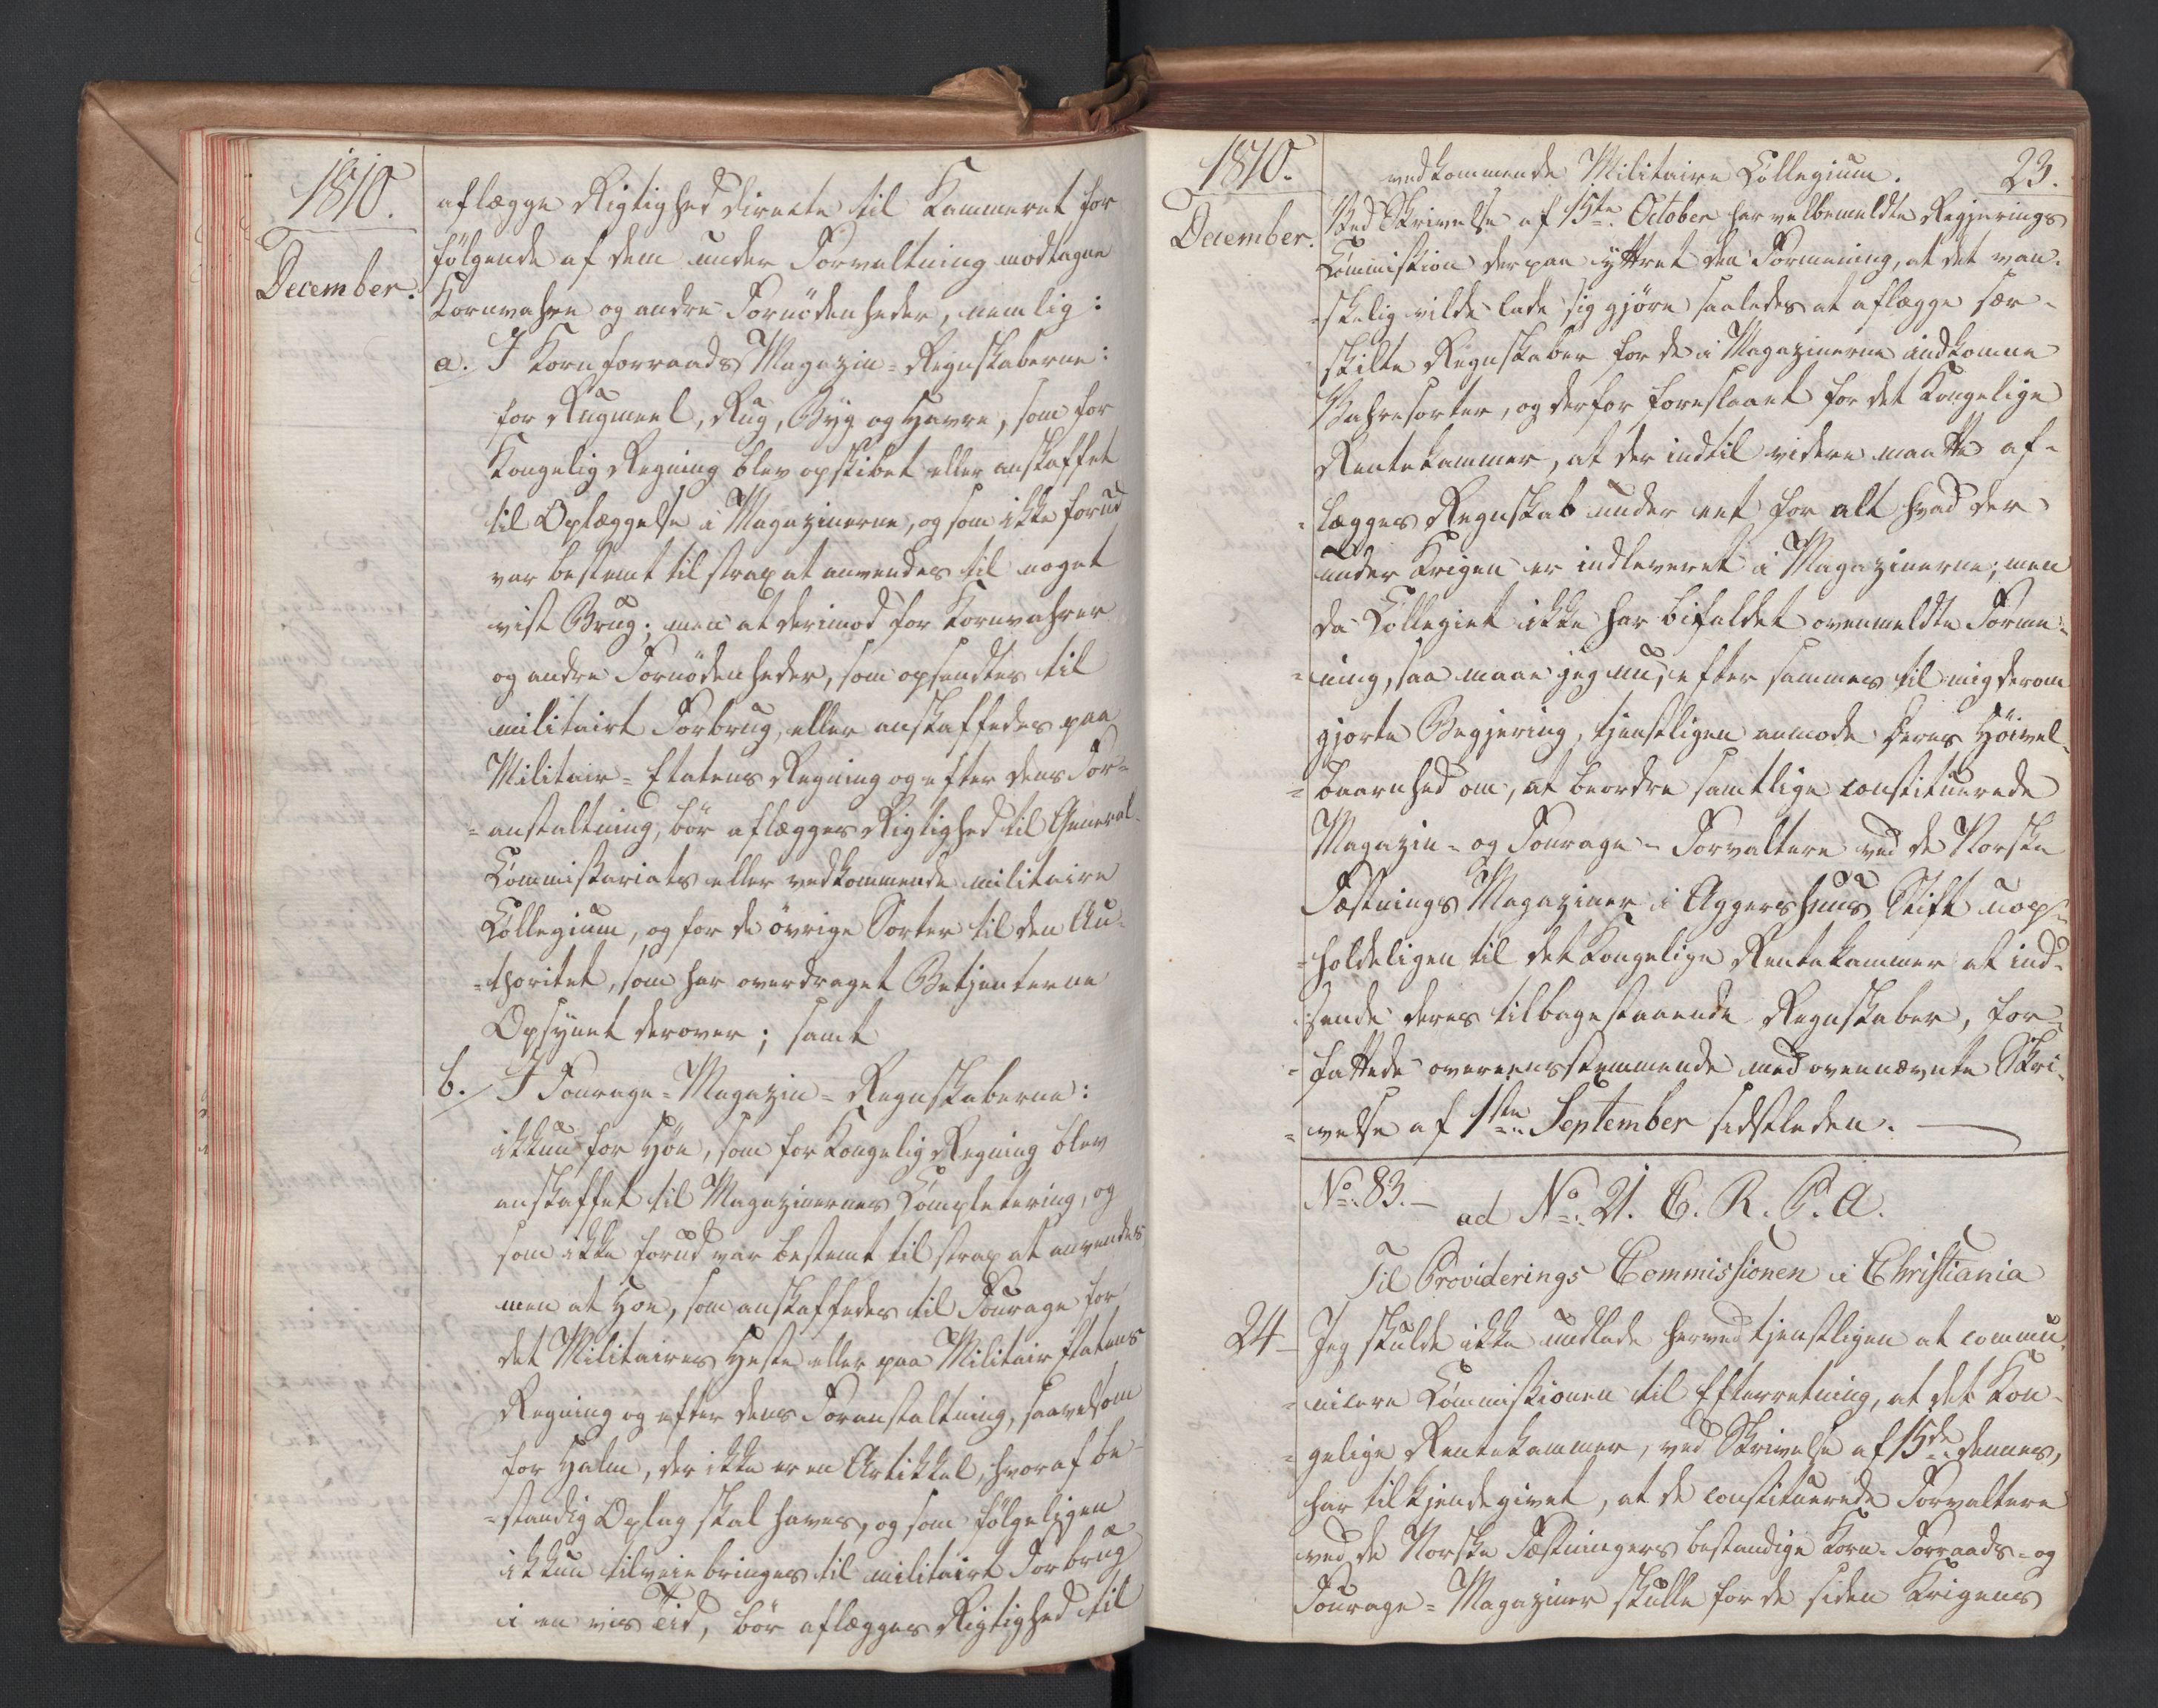 1810.
December.
aflægge Rigtighed directe til Kammeret for
følgende af dem under Forvaltning modtagne
Kornvahre og andre Fornödenheder, nemlig:
a. I Kornforraads Magazin-Regnskaberne:
for Rugmeel, Rug, Byg og Havre, som for
Kongelig Regning blev opskibet eller anskaffet
til Oplæggelse i Magazinerne, og som ikke forud
var bestemt til strax at anvendes til noget
vist Brug; men at derimod for Kornvahrer
og andre Fornödenheder, som opsendtes til
militairt Forbrug, eller anskaffedes paa
Militair-Etatens Regning og efter dens For-
=anstaltning, bör aflægges Rigtighed til General-
Commissariats eller vedkommende militaire
Collegium, og for de övrige Sorter til den Au-
=thoritet, som har overdraget Betjenterne
Opsynet derover; samt
b. I Fourage-Magazin-Regnskaberne:
ikkun for Höe, som for Kongelig Regning blev
anskaffet til Magazinernes Completering, og
som ikke forud var bestemt til strax at anvendes
men at Hoe, som anskaffedes til Fourage for
det Militaires Heste eller paa Militair Etatens
Regning og efter dens Foranstaltning, saavelsom
for Halm, der ikke er en Artikkel, hvoraf be-
=standig Oplag skal haves, og som fölgeligen
ikkun tilveiebringes til militairt Forbrug
i en vis Tid, bör aflægges Rigtighed til
1810.
December.
23.
vedkommende Militaire Collegium.
Ved Skrivelse af 15te October har velbemeldte Regjerings
Commission derpaa yttret den Formening, at det van-
=skelig vilde lade sig gjöre saaledes at aflægge sær-
=skilte Regnskaber for de i Magazinerne indkomne
Vahresorter, og derfor foreslaaet for det Kongelige
Rentekammer, at der indtil videre maatte af-
=lægges Regnskab under eet for alt hvad der
under Krigen er indleveret i Magazinerne; men
da Collegiet ikke har bifaldet ovenmeldte Forme-
=ning, saa maae jeg nu, efter sammes til mig derom
gjorte Begjering, tjenstligen anmode Deres Höivel-
=baarnhed om, at beordre samtlige constituerede
Magazin- og Fourage-Forvaltere ved de Norske
Fæstnings Magaziner i Aggershuus Stift uop-
=holdeligen til det Kongelige Rentekammer at ind-
=sende deres tilbagestaaende Regnskaber, for-
=fattede overeensstemmende med ovennævnte Skri-
=velse af 1ste September sidstleden.
No. 83.- ad No. 21. C. R. P. A.
Til Providerings Commissionen i Christiania
24- Jeg skulde ikke undlade herved tjenstligen at commu-
=nicere Commissionen til Efterretning, at det Kon-
=gelige Rentekammer, ved Skrivelse af 15de dennes,
har tilkjendegivet, at de constituerede Forvaltere
ved de Norske Fæstningers bestandige Korn-Forraads- og
Fourage-Magaziner skulle for de siden Krigens